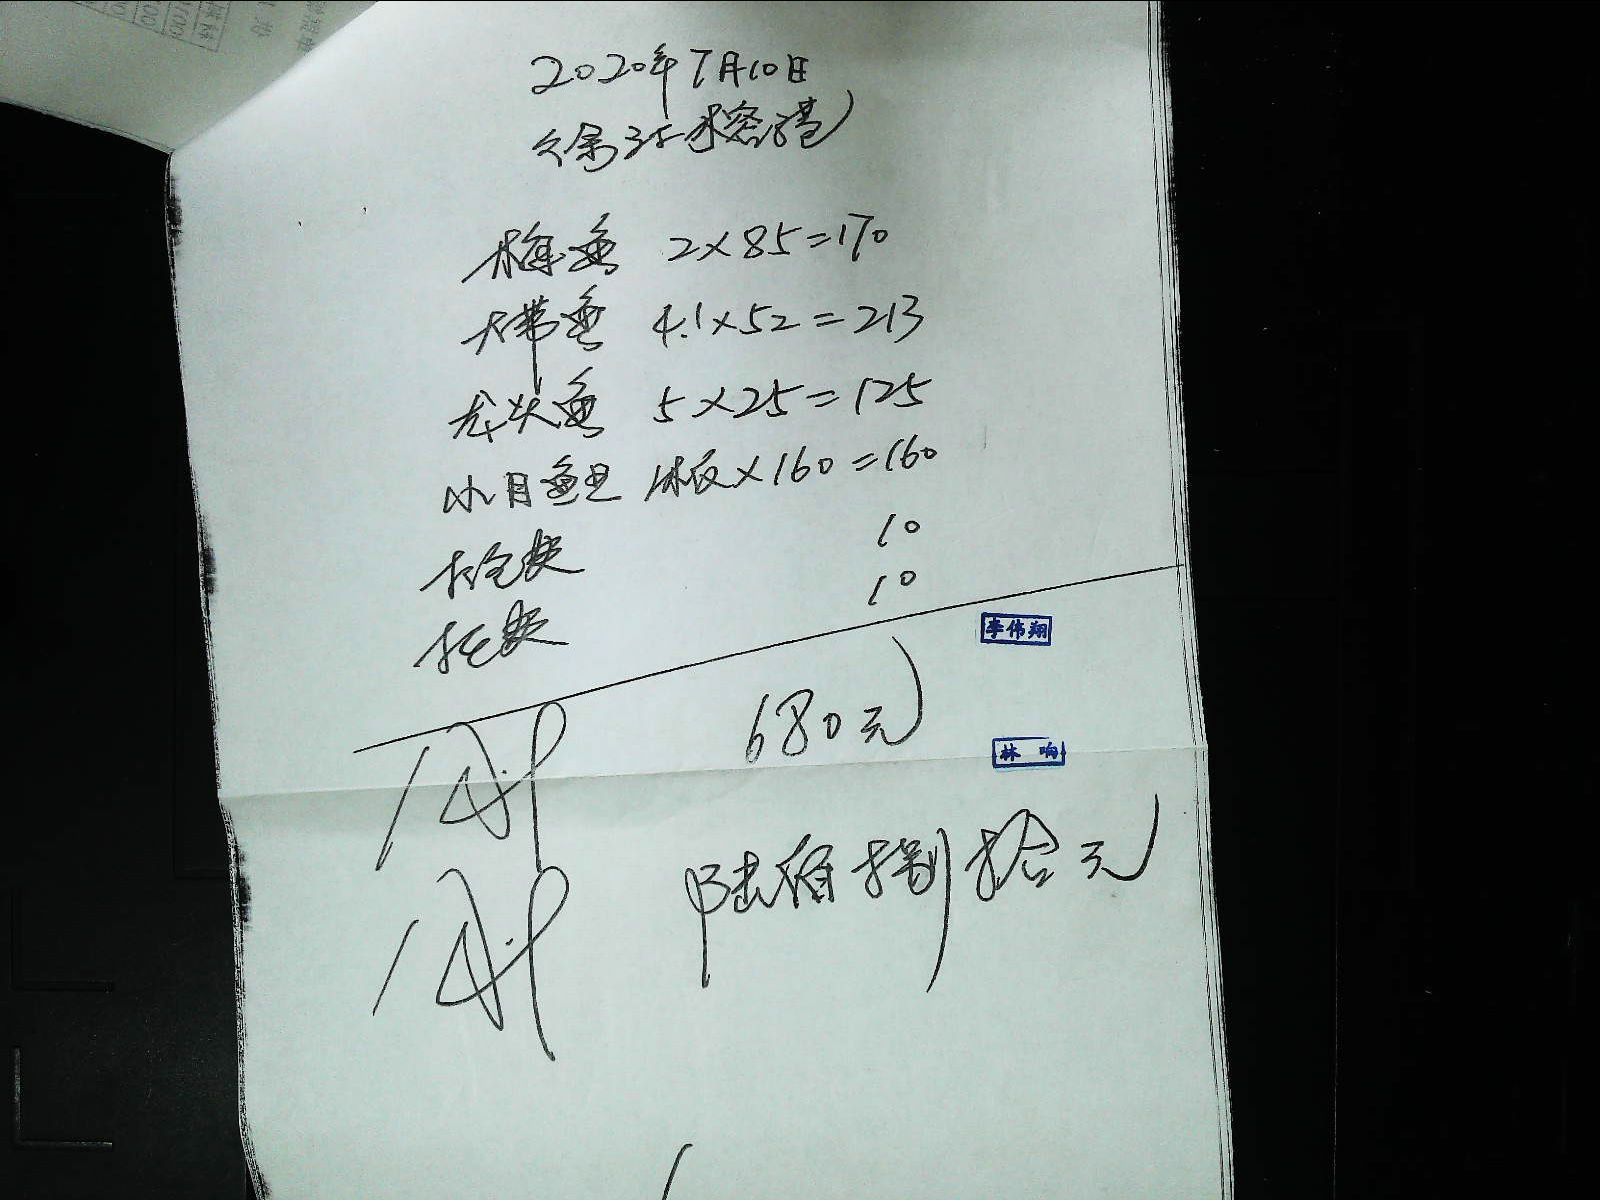 2020年7月10日
徐环水密港
梅鱼 2×85=170
大带鱼 4.1×52=213
龙头鱼 5×25=125
小目鱼旦 1板×160=160
打包费 10
托费 10
李伟翔
680元
林响
陆佰捌拾元